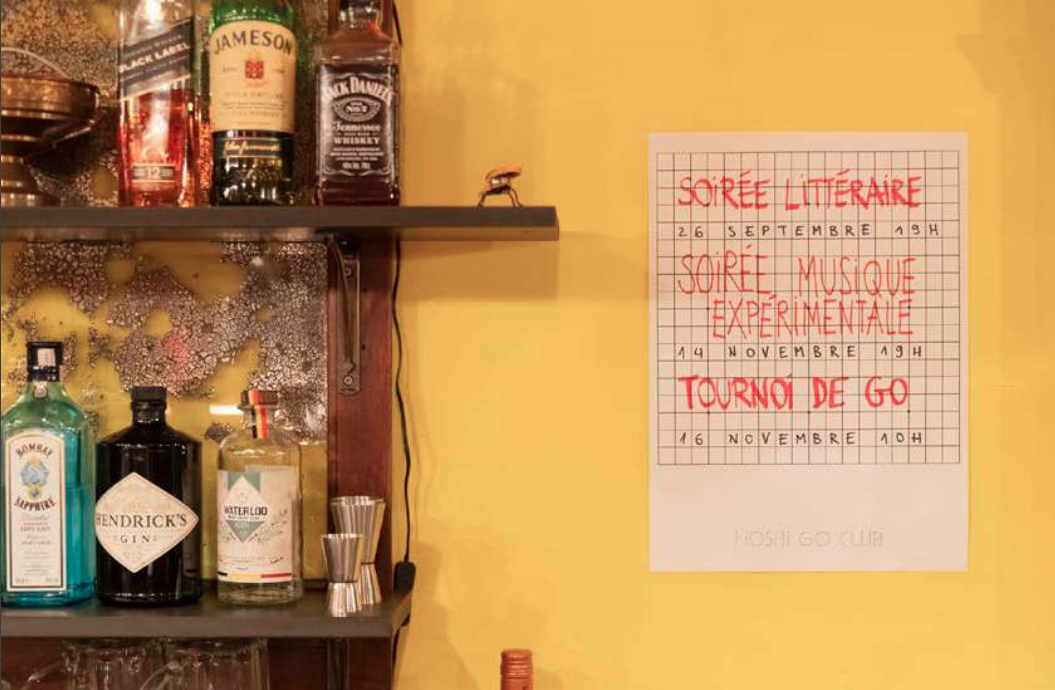 BLACK LABEL
12
JAMESON
JACK DANIEL'S
Tennessee
WHISKEY
BOMBAY
SAPPHIRE
HENDRICK'S
GIN
WATERLOO
SOIRÉE LITTÉRAIRE
26 SEPTEMBRE 19H
SOIRÉE MUSIQUE
EXPÉRIMENTALE
14 NOVEMBRE 19H
TOURNOI DE GO
16 NOVEMBRE 10H
HOSHI GO CLUB